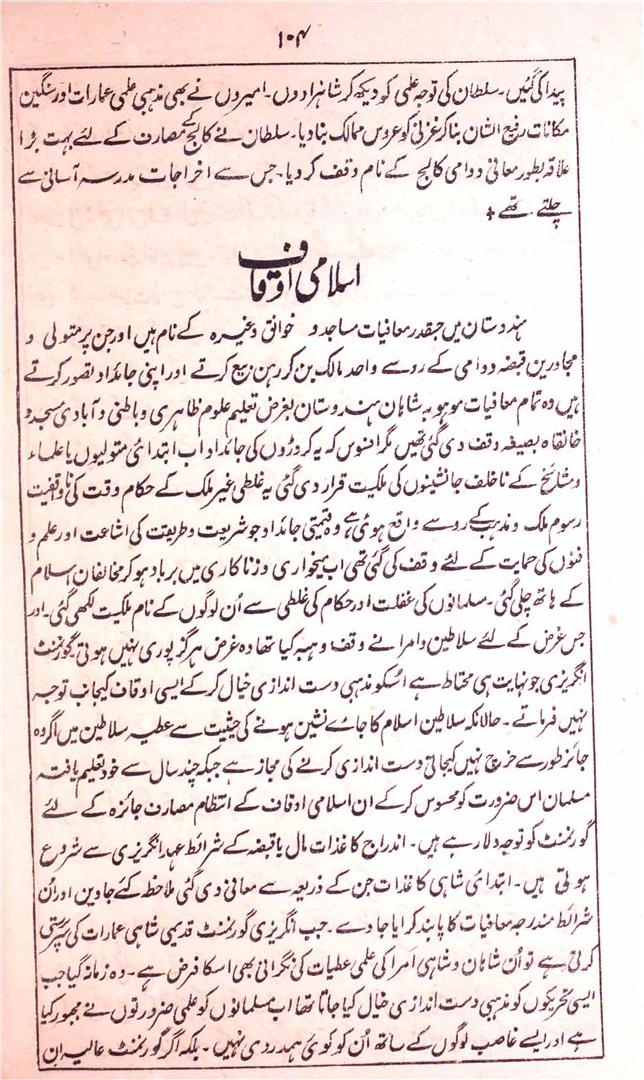 ۱۰۴
پیدا کی گئیں۔ سلطان کی توجہ علمی کو دیکھ کر شاہزادوں۔ امیروں نے بھی مذہبی علمی عمارات اور سنگین
مکانات رفیع الشان بنا کر غزنی کو عروس ممالک بنا دیا۔ سلطان نے کالج کے مصارف کے لئے بہت بڑا
علاقہ بطور معافی دوامی کالج کے نام وقف کر دیا۔ جس سے اخراجات مدرسہ آسانی سے
چلتے تھے ؞
اسلامی اوقاف
ہندوستان میں جسقدر معافیات مساجد و خوانق وغیرہ کے نام ہیں اور جن پر متولی و
مجاورین قبضہ دوامی کے رو سے واحد مالک بن کر رہن بیع کرتے اور اپنی جائداد تصور کرتے
ہیں وہ تمام معافیات موہوبہ شاہان ہندوستان بغرض تعلیم علوم ظاہری و باطنی و آبادی مسجد و
خانقاہ بصیغہ وقف دی گئی تھیں مگر افسوس کہ یہ کروڑوں کی جائداد اب ابتدائی متولیوں یا علماء
و مشائخ کے ناخلف جانشینوں کی ملکیت قرار دی گئی یہ غلطی غیر ملک کے حکام وقت کی ناوقفیت
رسوم ملک و مذہب کے رو سے واقع ہوئی ہے وہ قیمتی جائداد جو شریعت و طریقت کی اشاعت اور علم و
فنوں کی حمایت کے لئے وقف کی گئی تھی اب میخواری و زناکاری میں برباد ہو کر مخالفان اسلام
کے ہاتھ چلی گئی۔ مسلمانوں کی غفلت اور حکام کی غلطی سے اُن لوگوں کے نام ملکیت لکھی گئی۔ اور
جس غرض کے لئے سلاطین و امرا نے وقف و ہبہ کیا تھا وہ غرض ہرگز پوری نہیں ہوتی۔ گورنمنٹ
انگریزی جو نہایت ہی محتاط ہے اُسکو مذہبی دست اندازی خیال کر کے ایسی اوقاف کیجانب توجہ
نہیں فرماتے۔ حالانکہ سلاطین اسلام کا جائے نشین ہونے کی حیثیت سے عطیہ سلاطین میں اگر وہ
جائز طور سے خرچ نہیں کیجاتی دست اندازی کرنے کی مجاز ہے جبکہ چند سال سے خود تعلیم یافتہ
مسلمان اس ضرورت کو محسوس کر کے ان اسلامی اوقاف کے انتظام مصارف جائزہ کے لئے
گورنمنٹ کو توجہ دلا رہے ہیں۔ اندراج کاغذات مال یا قبضہ کے شرائط عہد انگریزی سے شروع
ہوتی ہیں۔ ابتدائی شاہی کاغذات جن کے ذریعہ سے معافی دی گئی ملاحظہ کئے جاویں اور اُن
شرائط مندرجہ معافیات کا پابند کرایا جاوے۔ جب انگریزی گورنمنٹ قدیمی شاہی عمارات کی سرپرستی
کرتی ہے تو اُن شاہان و شاہی اُمرا کی علمی عطیات کی نگرانی بھی اسکا فرض ہے۔ وہ زمانہ گیا جب
ایسی تحریکوں کو مذہبی دست اندازی خیال کیا جاتا تھا اب مسلمانوں کو علمی ضرورتوں نے مجبور کیا
ہے اور ایسے غاصب لوگوں کے ساتھ اُن کو کوئی ہمدردی نہیں۔ بلکہ اگر گورنمنٹ عالیہ ان